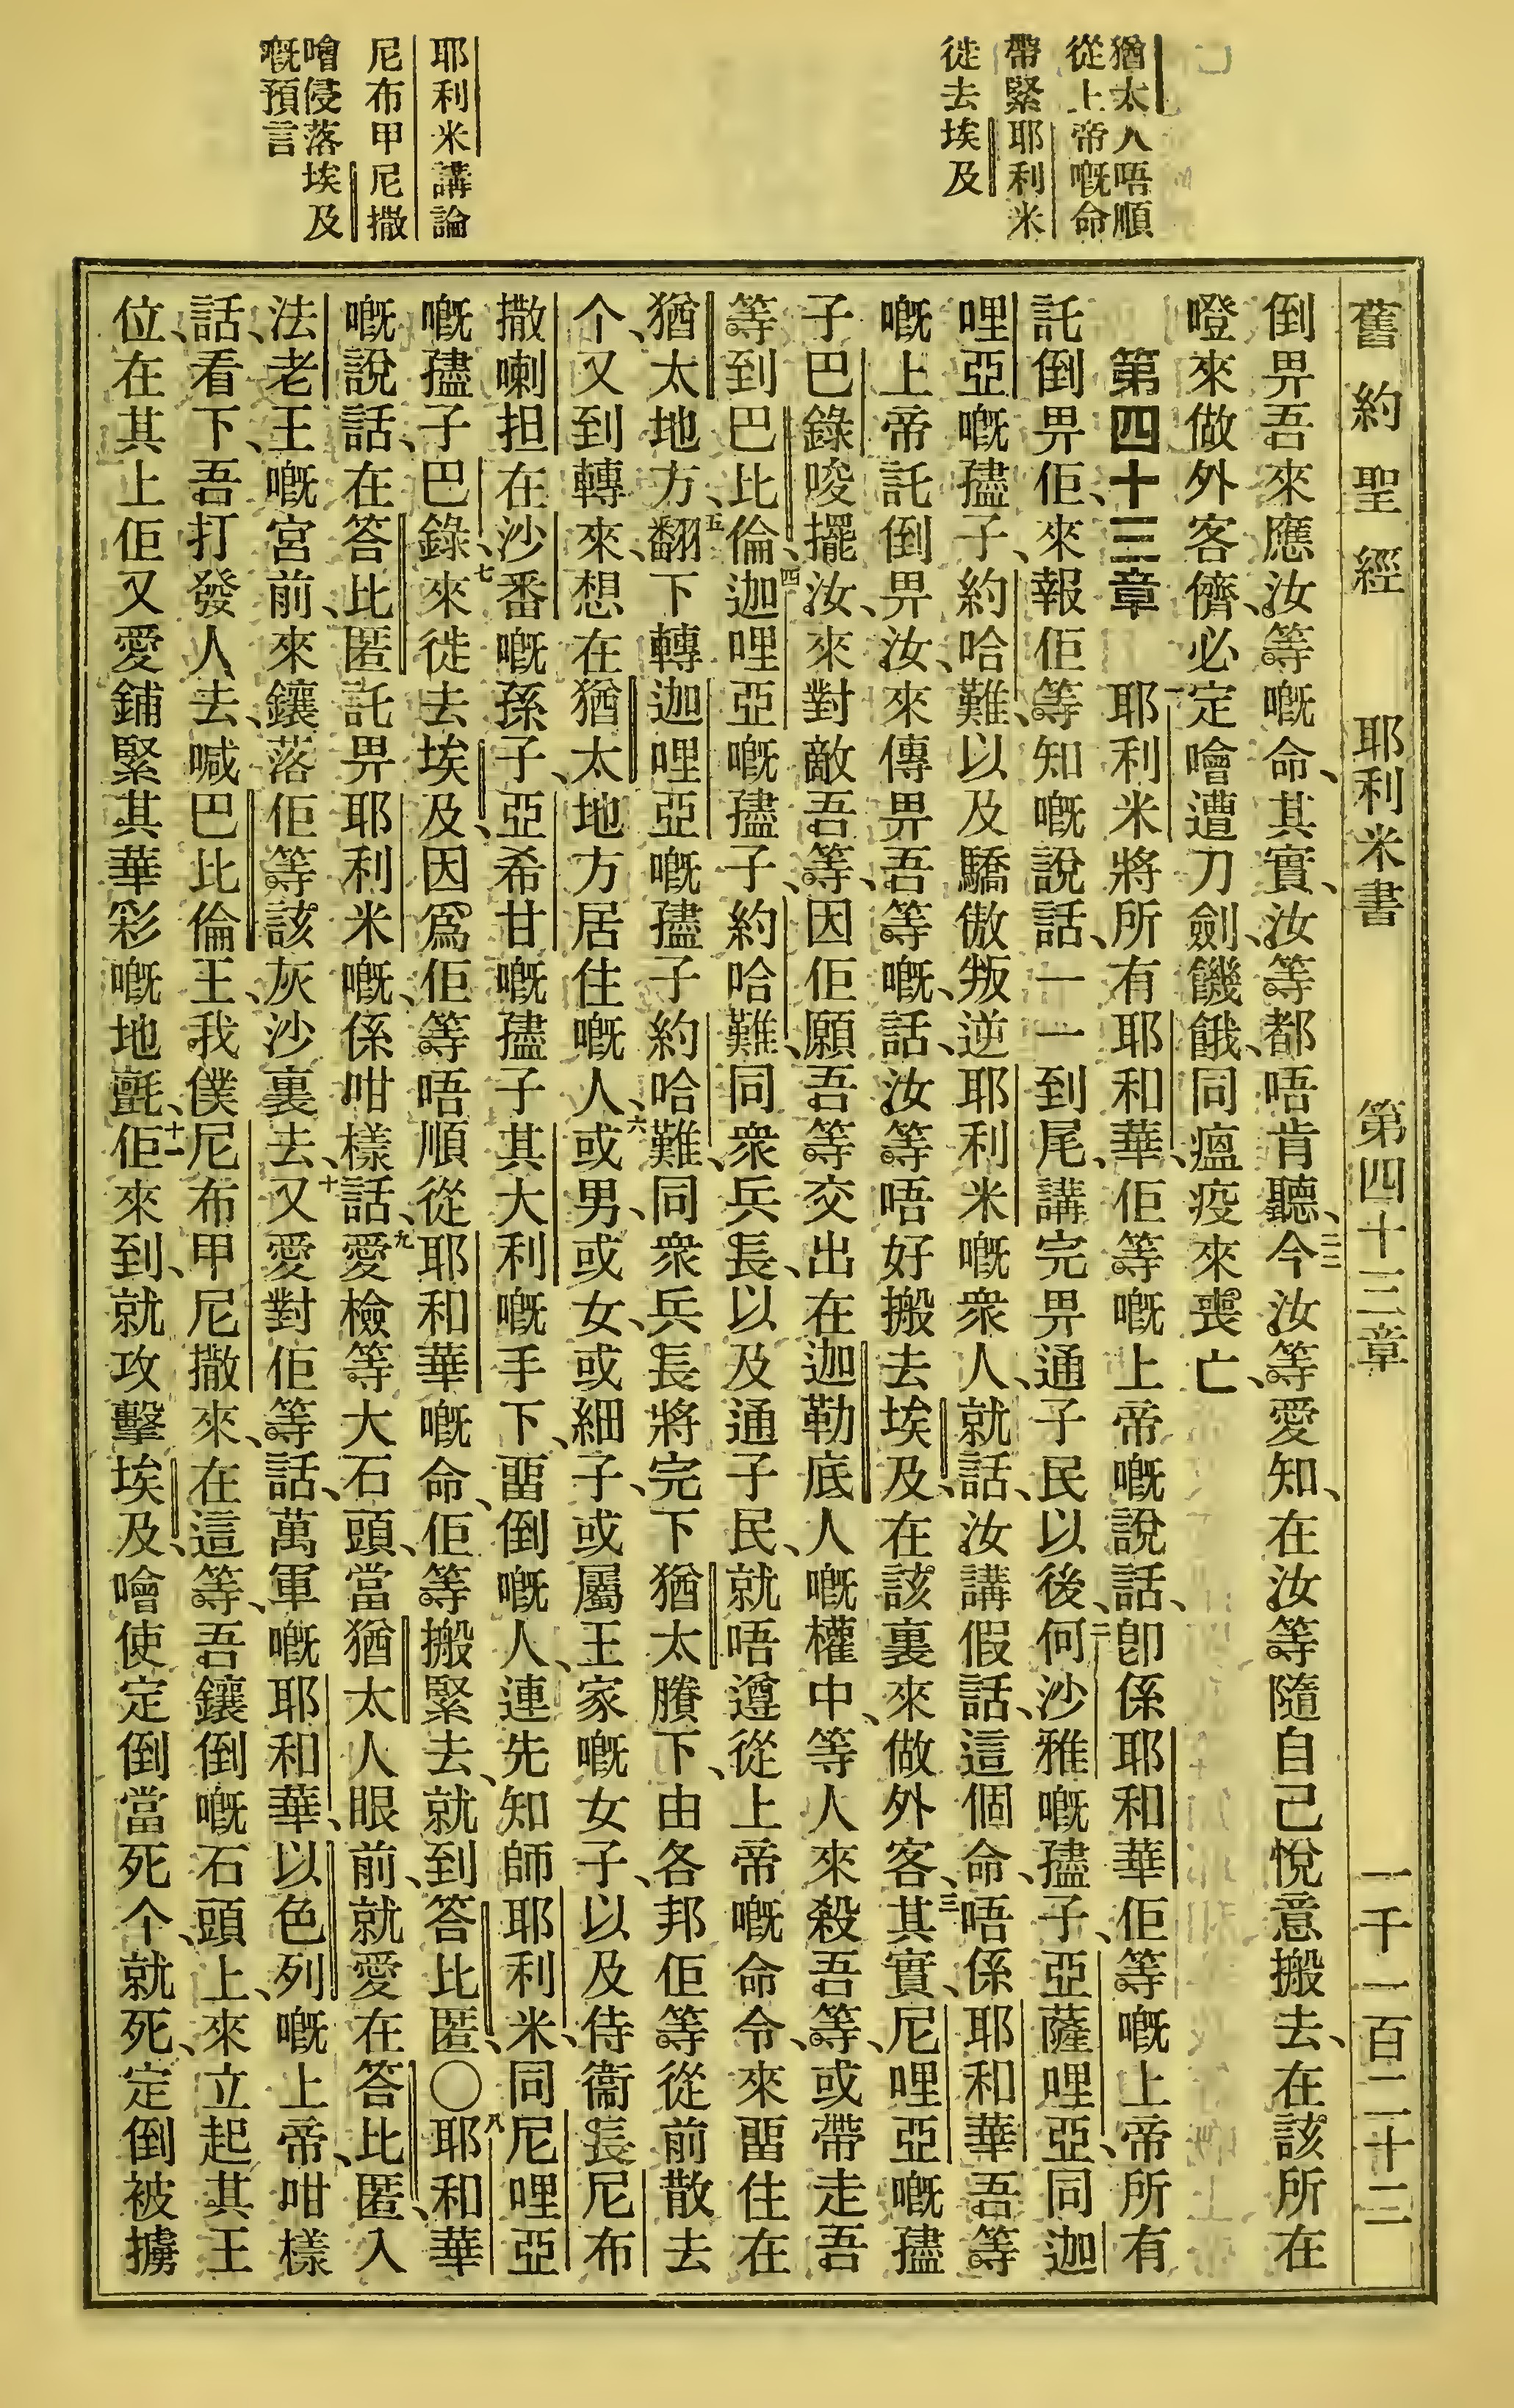 猶太人唔順
從上帝嘅命
帶緊耶利米
徙去埃及
耶利米講論
尼布甲尼撒
噲侵落埃及
嘅預言
舊約聖經 耶利米書 第四十三章 一千一百二十二
倒畀吾來應汝等嘅命、其實、汝等都唔肯聽、二二今汝等愛知、在汝等隨自己悅意搬去、在該所在
噔來做外客儕、必定噲遭刀劍、饑餓、同瘟疫來喪亡、
第四十三章 一耶利米將所有耶和華、佢等嘅上帝嘅說話、卽係耶和華佢等嘅上帝所有
託倒畀佢、來報佢等知嘅說話、一一到尾、講完畀通子民以後、二何沙雅嘅𡥧子、亞薩哩亞、同迦
哩亞嘅𡥧子、約哈難、以及驕傲叛逆耶利米嘅衆人、就話、汝講假話、這個命、唔係耶和華吾等
嘅上帝託倒畀汝、來傳畀吾等嘅、話、汝等唔好搬去埃及、在該裏來做外客、三其實、尼哩亞嘅𡥧
子巴錄唆擺汝、來對敵吾等、因佢願吾等交出在迦勒底人嘅權中、等人來殺吾等、或帶走吾
等到巴比倫、四迦哩亞嘅𡥧子、約哈難、同衆兵長、以及通子民、就唔遵從上帝嘅命令、來畱住在
猶太地方、五翻下轉迦哩亞嘅𡥧子約哈難、同衆兵長將完下猶太賸下、由各邦佢等從前散去
个、又到轉來、想在猶太地方居住嘅人、六或男、或女、或細子、或屬王家嘅女子、以及侍衞長尼布
撒喇担在沙番嘅孫子、亞希甘嘅𡥧子其大利嘅手下、畱倒嘅人、連先知師耶利米、同尼哩亞
嘅𡥧子巴錄、七來徙去埃及、因爲佢等唔順從耶和華嘅命、佢等搬緊去、就到答比匿、〇八耶和華
嘅說話、在答比匿託畀耶利米嘅、係咁樣話、九愛檢等大石頭、當猶太人眼前、就愛在答比匿、入
法老王嘅宮前、來鑲落佢等該灰沙裏去、十又愛對佢等話、萬軍嘅耶和華、以色列嘅上帝、咁樣
話、看下、吾打發人去、喊巴比倫王、我僕尼布甲尼撒來、在這等、吾鑲倒嘅石頭上、來立起其王
位、在其上佢又愛鋪緊其華彩嘅地氈、十一佢來到、就攻擊埃及、噲使定倒當死个、就死、定倒被擄